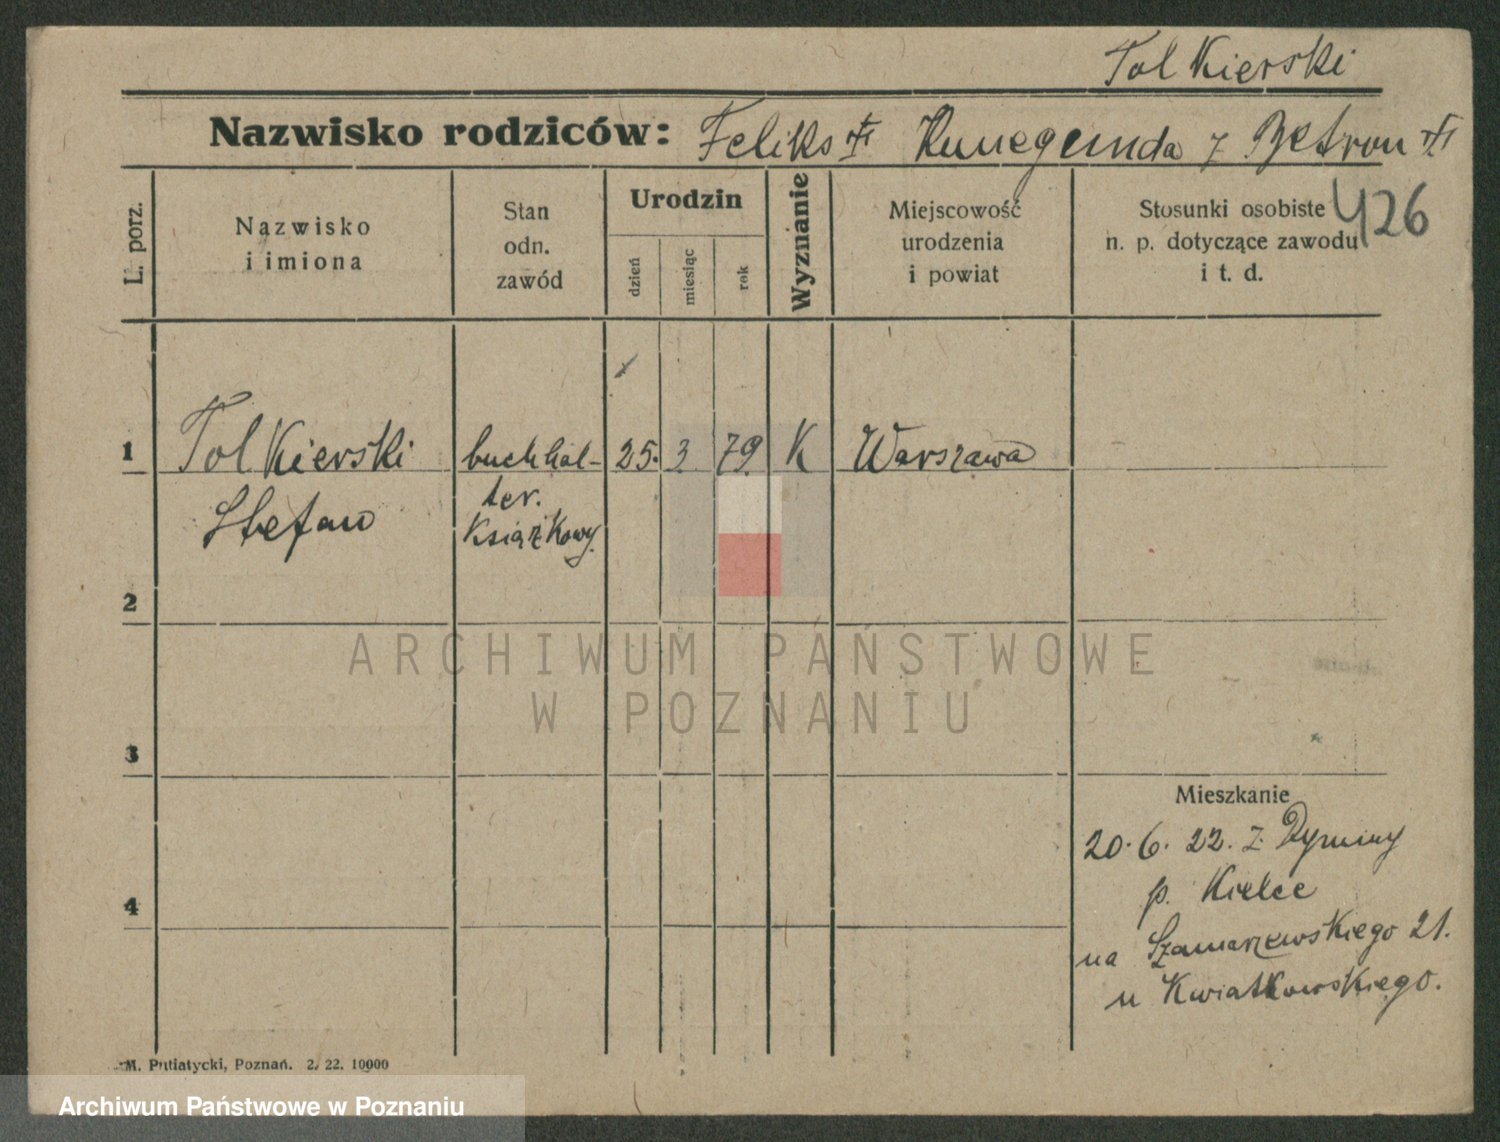 Tolkierski
Nazwisko rodziców: Feliks Kunegunda z
426
L. porz.
Nazwisko
i imiona
Stan
odn.
zawód
Urodzin
dzień
miesiąc
rok
Wyznanie
Miejscowość
urodzenia
i powiat
Stosunki osobiste
n. p. dotyczące zawodu
i t. d.
1
Tolkierski
Stefan
buchhal-
ter.
Książkowy.
25. 3. 79.
K
Warszawa
2
3
4
ARCHIWUM PAŃSTWOWE
W POZNANIU
Mieszkanie
20. 6. 22. z Dyminy
p. Kielce
na Szamarzewskiego 21.
u Kwiatkowskiego.
M. Putiatycki, Poznań. 2. 22. 10000
Archiwum Państwowe w Poznaniu